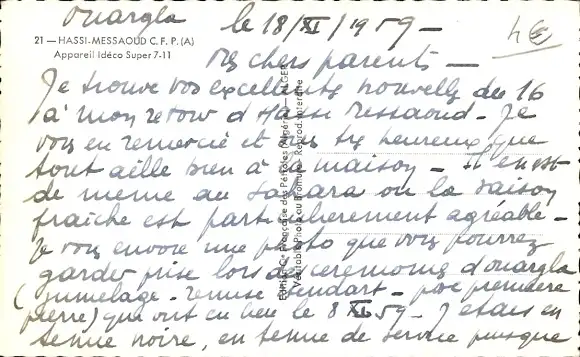 Ouargla
le 18/XI/1959 -
4€
21 — HASSI-MESSAOUD C. F. P. (A)
Appareil Idéco Super 7-11
Mes chers parents —
Je trouve vos excellentes nouvelles du 16
à mon retour d'Hassi Messaoud - Je
vous en remercie et suis très heureux que
tout aille bien à la maison - Il en est
de même au Sahara où la saison
fraîche est particulièrement agréable -
Je vous envoie une photo que vous pourrez
garder prise lors des cérémonies d'Ouargla
(jumelage - remise étendart - pose première
pierre) qui ont eu lieu le 8 XI 59 - J'étais en
tenue noire, en tenue de service puisque
Edition Cie Française des Pétroles (Algérie) — ALGER
Véritable Photo au Bromure - Reprod. interdite